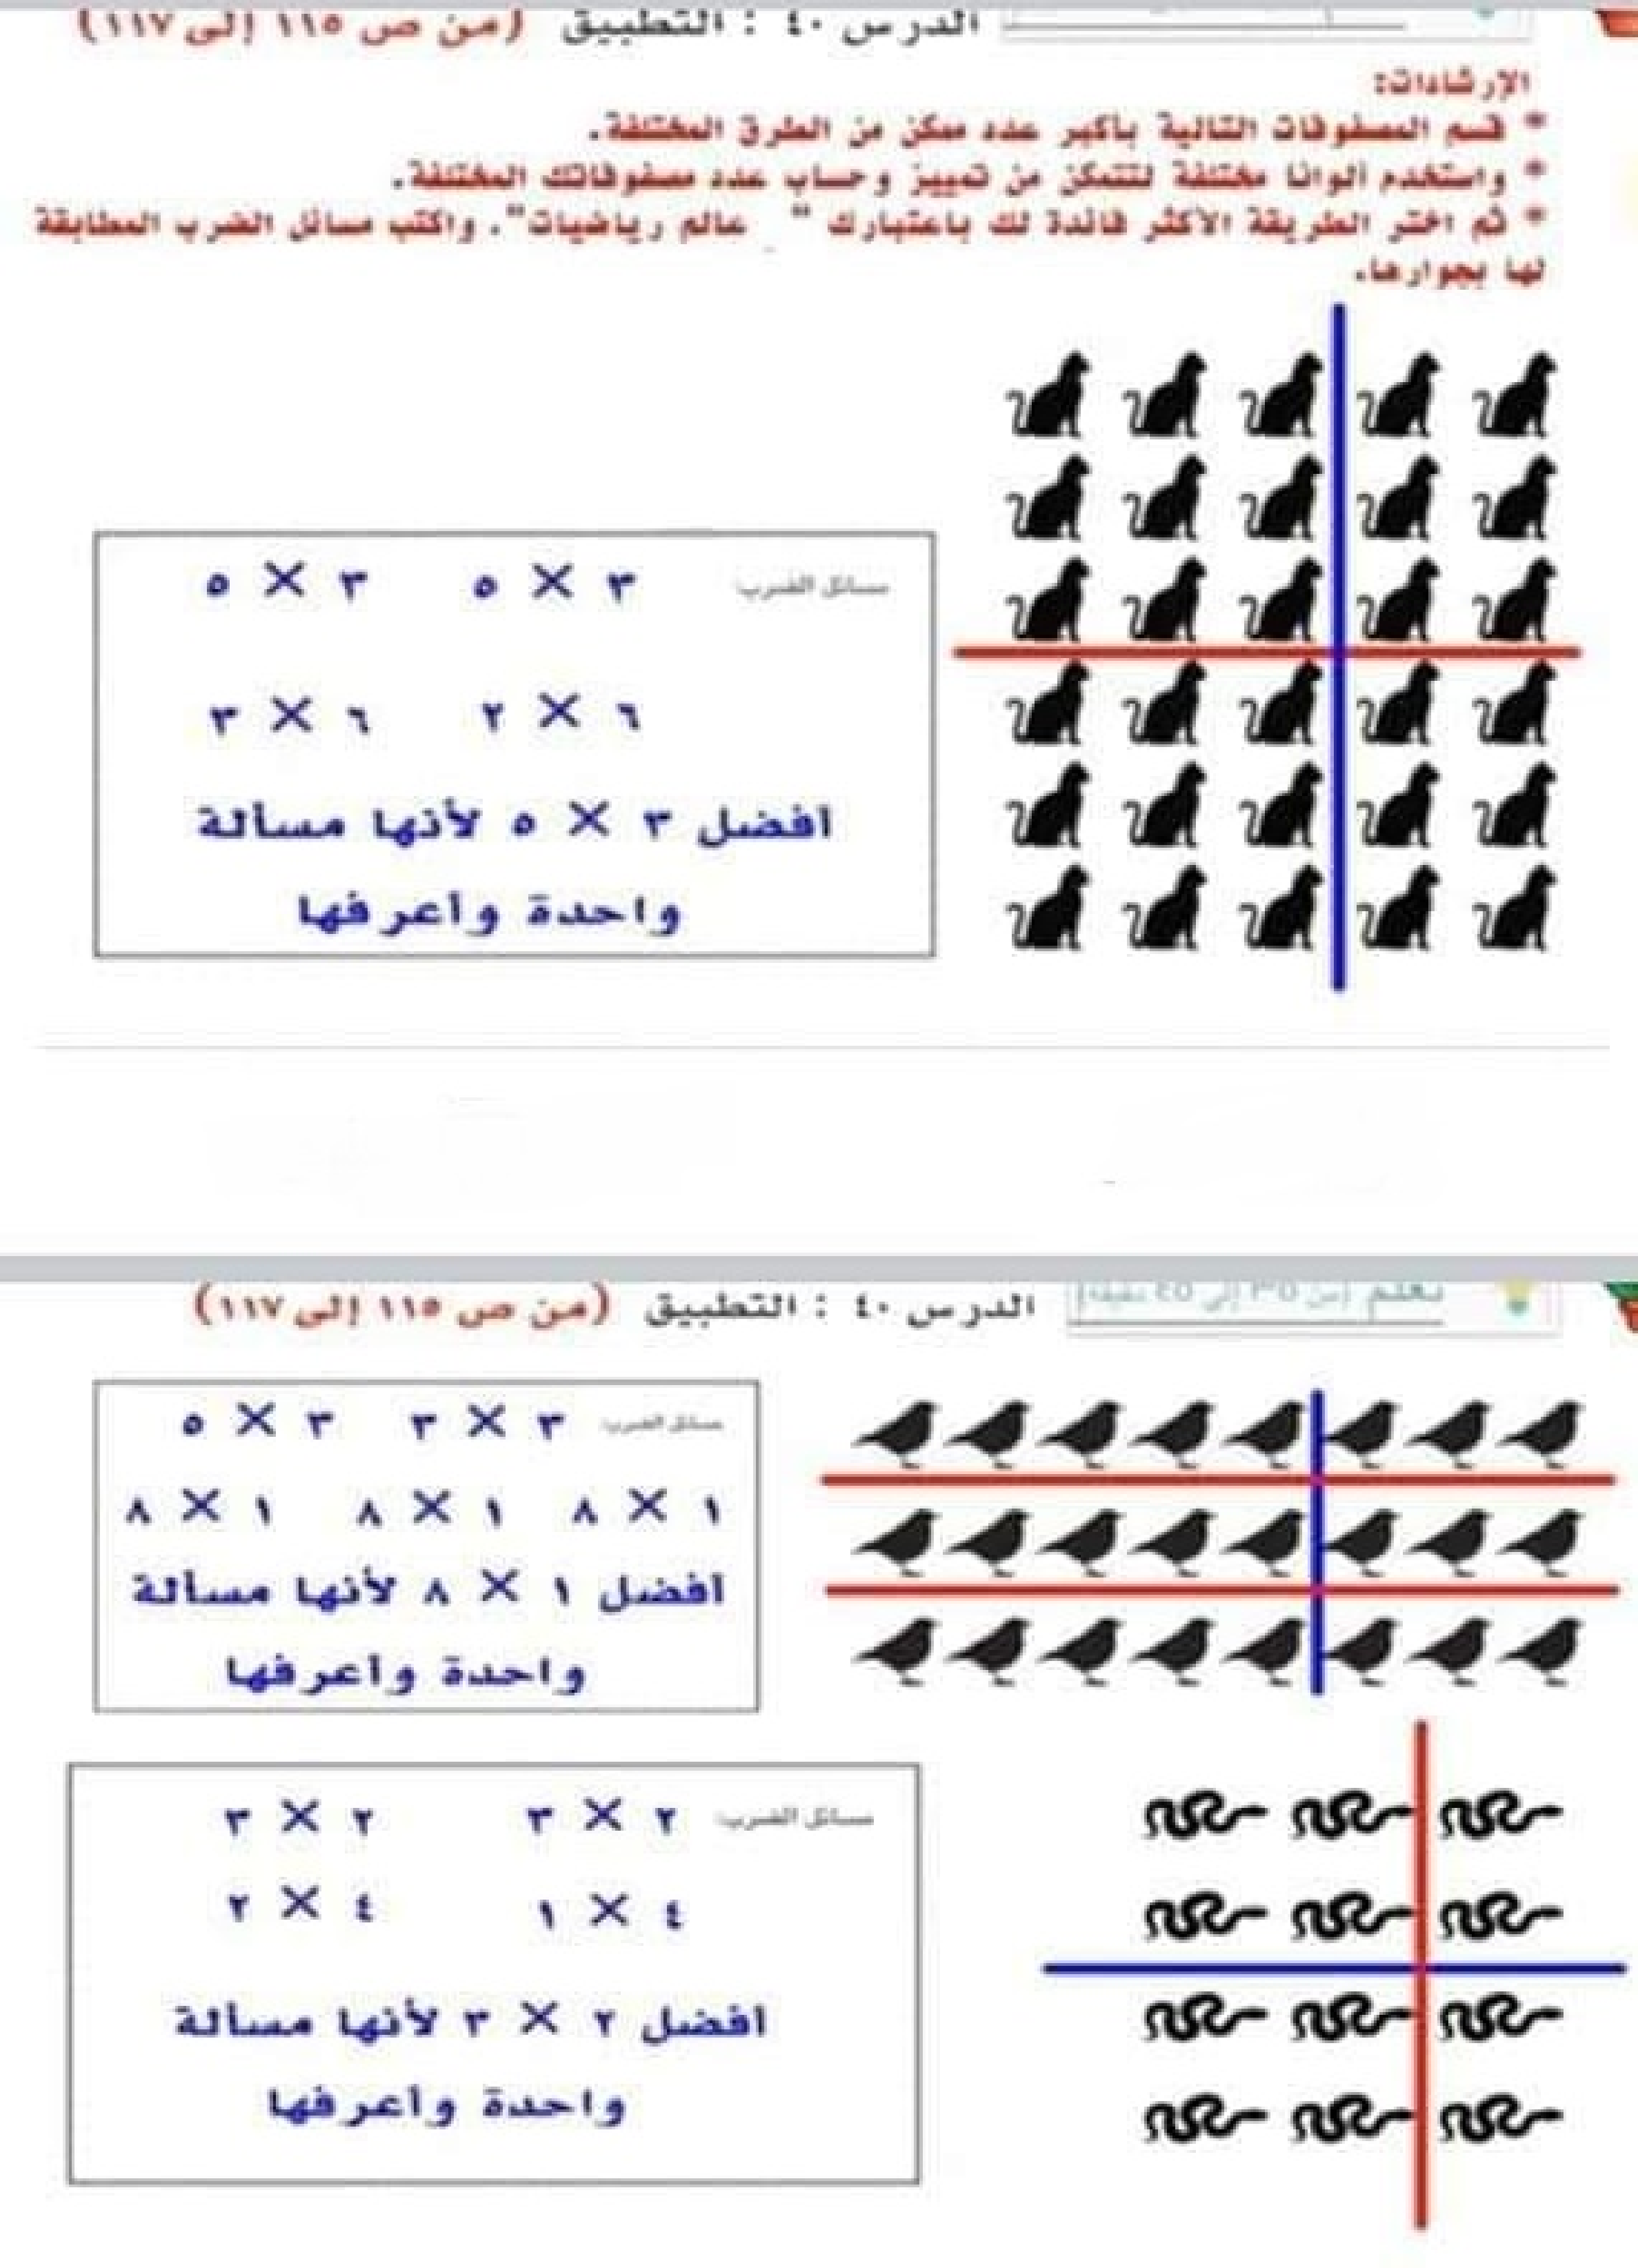 الدرس ٤٠ : التطبيق (من ص ١١٥ إلى ١١٧)
الإرشادات:
* قسم المصفوفات التالية بأكبر عدد ممكن من الطرق المختلفة.
* واستخدم ألوانا مختلفة لتتمكن من تمييز وحساب عدد مصفوفاتك المختلفة.
* ثم اختر الطريقة الأكثر فائدة لك باعتبارك " عالم رياضيات". واكتب مسائل الضرب المطابقة
لها بجوارها.
مسائل الضرب: ٣ × ٥ ٣ × ٥
٦ × ٢ ٦ × ٣
افضل ٣ × ٥ لأنها مسألة
واحدة وأعرفها
تعلم (من ٣٥ إلى ٤٥ دقيقة)
الدرس ٤٠ : التطبيق (من ص ١١٥ إلى ١١٧)
مسائل الضرب: ٣ × ٣ ٣ × ٥
١ × ٨ ١ × ٨ ١ × ٨
افضل ١ × ٨ لأنها مسألة
واحدة وأعرفها
مسائل الضرب: ٢ × ٣ ٢ × ٣
٤ × ١ ٤ × ٢
افضل ٢ × ٣ لأنها مسألة
واحدة وأعرفها